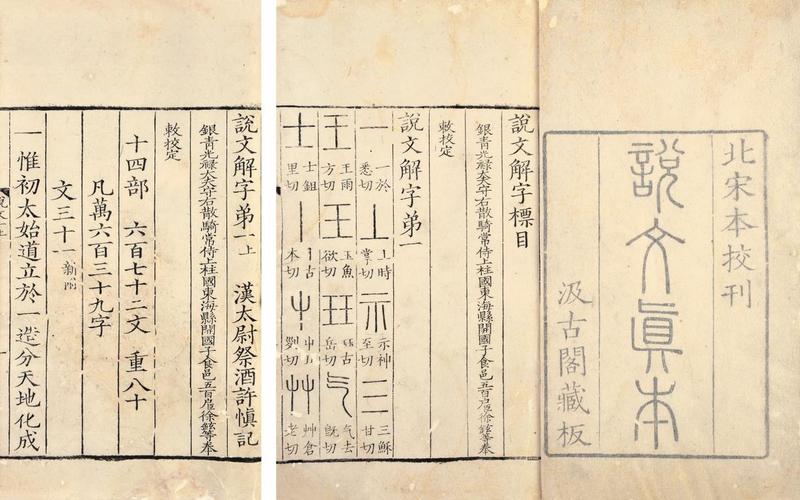 北宋本校刊
說文眞本
汲古閣藏板
說文解字標目
銀青光祿大夫守右散騎常侍上柱國東海縣開國子食邑五百戶臣徐鉉等奉
敕校定
說文解字弟一
一 一於悉切 丄 丄時掌切 示 示神至切 三 三穌甘切
王 王雨方切 玉 玉魚欲切 玨 古岳切 气 气去旣切
士 士鉏里切 丨 丨古本切 屮 切 艸 艸倉老切
說文解字弟一上 漢太尉祭酒許愼記
銀青光祿大夫守右散騎常侍上柱國東海縣開國子食邑五百戶臣徐鉉等奉
敕校定
十四部 六百七十二文 重八十
凡萬六百三十九字
文三十一新附
一惟初太始道立於一造分天地化成